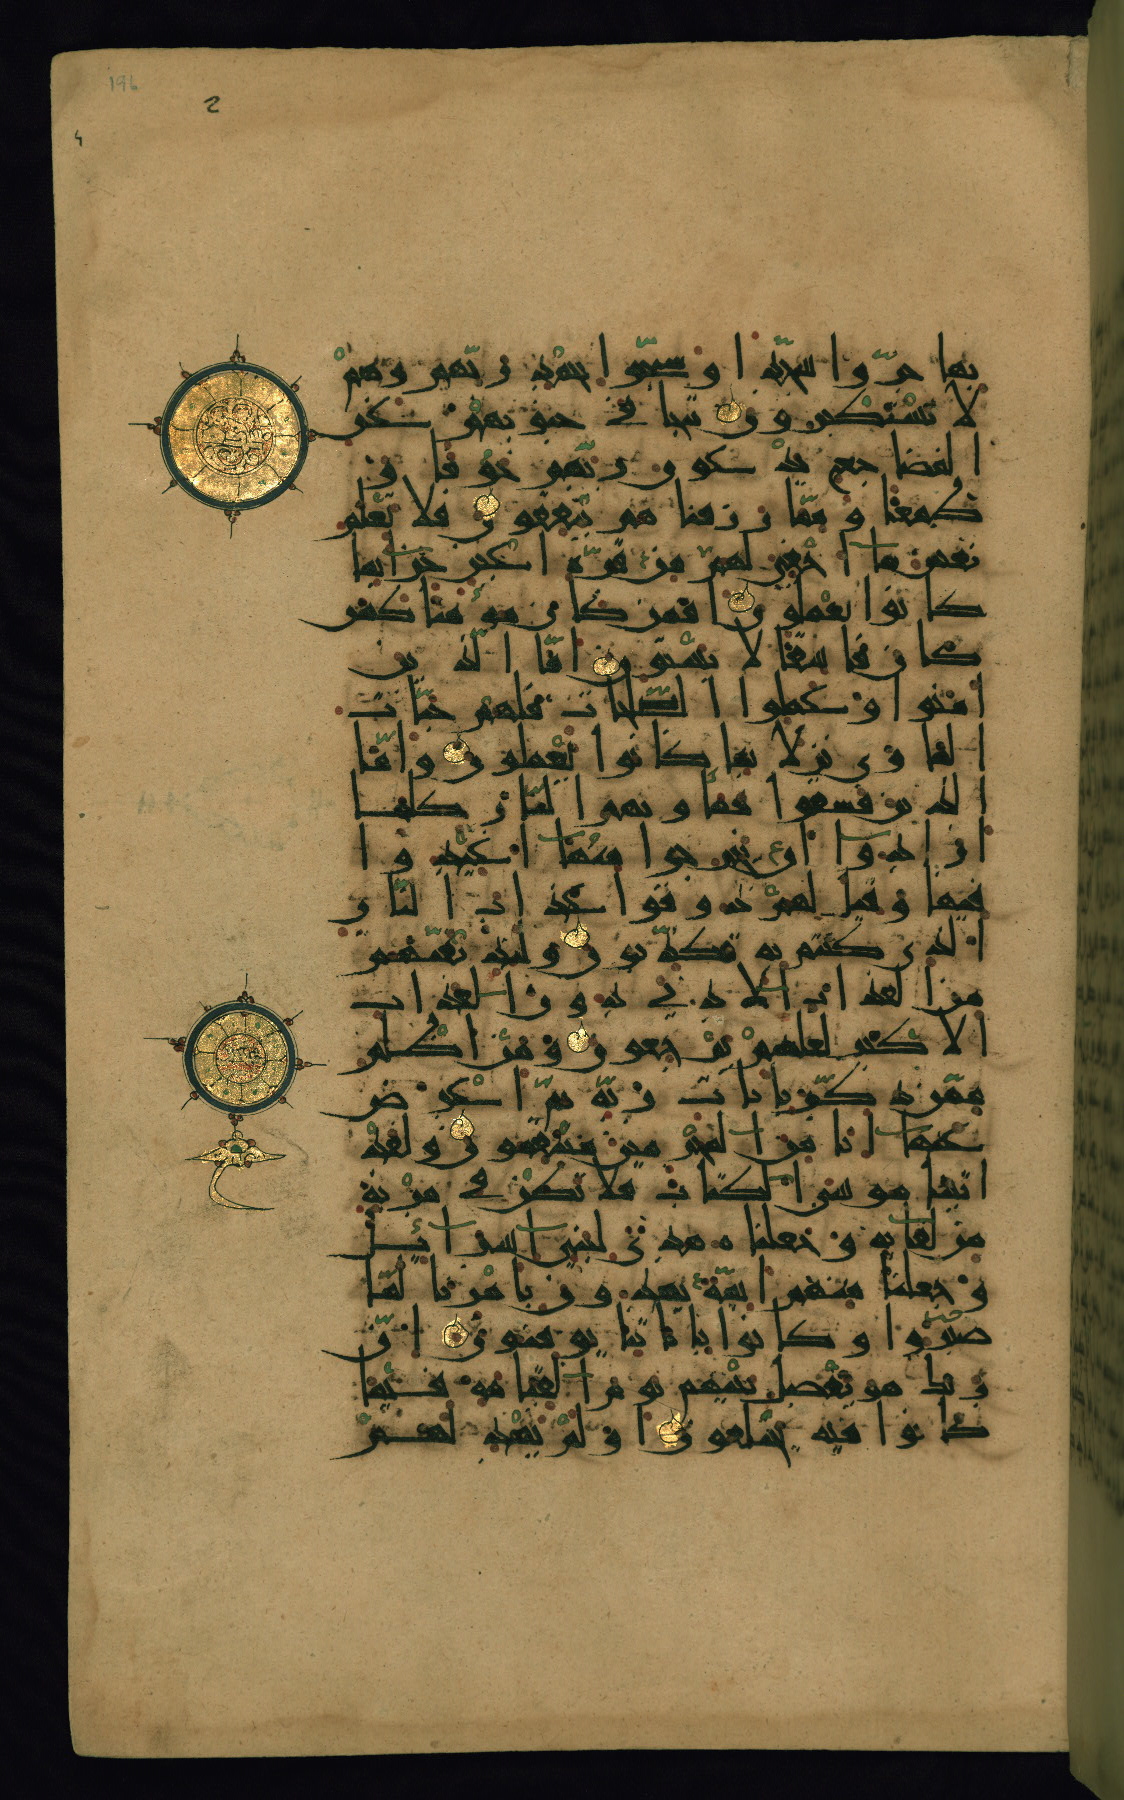 196
2
4
بها خروا سجدا وسبحوا بحمد ربهم وهم
لا يستكبرون تتجافى جنوبهم عن
المضاجع يدعون ربهم خوفا و
طمعا ومما رزقناهم ينفقون فلا تعلم
نفس ما اخفي لهم من قرة اعين جزاء بما
كانوا يعملون افمن كان مؤمنا كمن
كان فاسقا لا يستون اما الذين
امنوا وعملوا الصلحات فلهم جنات
الماوى نزلا بما كانوا يعملون واما
الذين فسقوا فماويهم النار كلما
ارادوا ان يخرجوا منها اعيدوا
فيها وقيل لهم ذوقوا عذاب النار
الذي كنتم به تكذبون ولنذيقنهم
من العذاب الادنى دون العذاب
الاكبر لعلهم يرجعون ومن اظلم
ممن ذكر بايات ربه ثم اعرض
عنها انا من المجرمين منتقمون ولقد
اتينا موسى الكتاب فلا تكن في مرية
من لقائه وجعلناه هدى لبني اسرائيل
وجعلنا منهم ائمة يهدون بامرنا لما
صبروا وكانوا باياتنا يوقنون ان
ربك هو يفصل بينهم يوم القيامة فيما
كانوا فيه يختلفون اولم يهد لهم